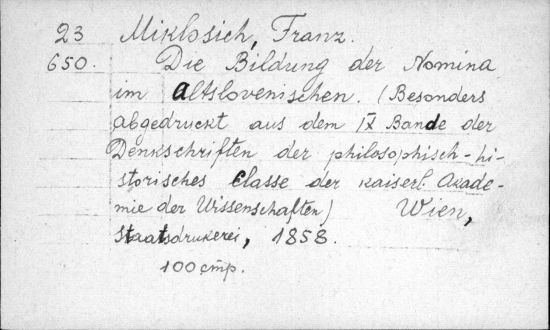 23 Miklosich, Franz.
650. Die Bildung der Nomina
im Altslovenischen. (Besonders
abgedruckt aus dem IX Bande der
Denkschriften der philosophisch-hi-
storisches Classe der kaiserl. Akade-
mie der Wissenschaften) Wien,
Staatsdrukerei, 1858.
100 стр.